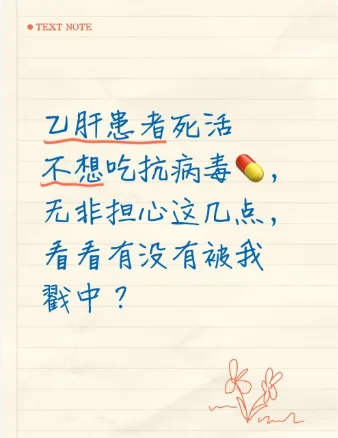 TEXT NOTE
乙肝患者死活
不想吃抗病毒💊，
无非担心这几点，
看看有没有被我
戳中？